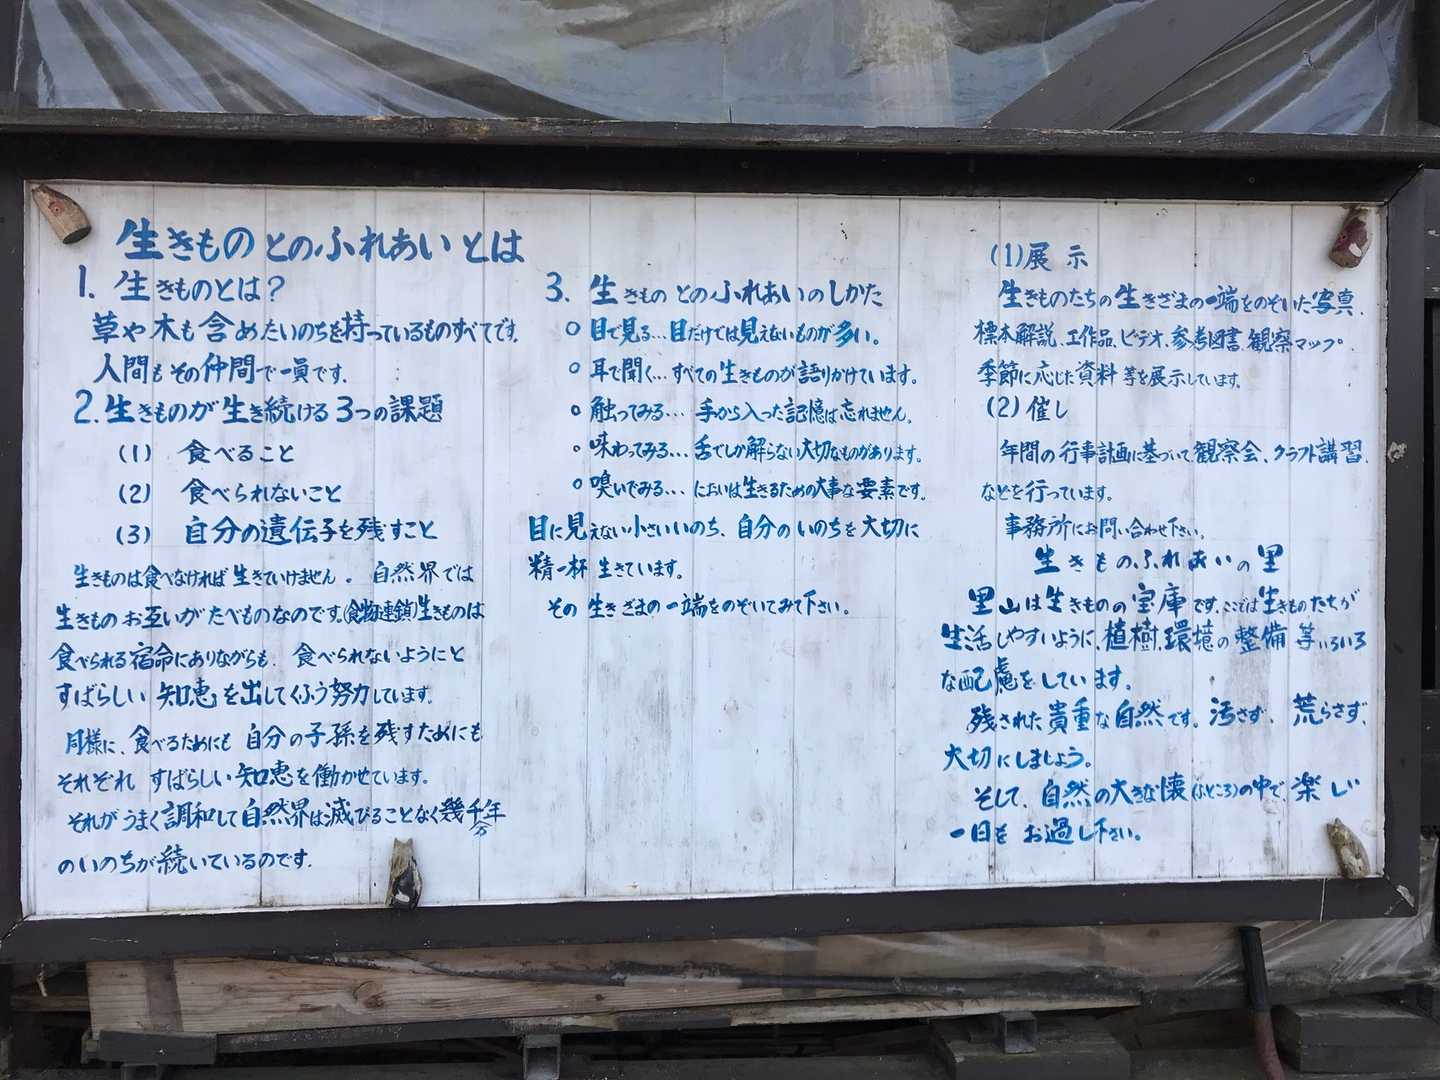 生きものとのふれあいとは
1. 生きものとは?
草や木も含めたいのちを持っているものすべてです。
人間もその仲間で一員です。
2. 生きものが生き続ける3つの課題
(1) 食べること
(2) 食べられないこと
(3) 自分の遺伝子を残すこと
生きものは食べなければ生きていけません。自然界では
生きものお互いがたべものなのです。(食物連鎖)生きものは
食べられる宿命にありながらも、食べられないようにと
すばらしい知恵を出してくふう努力しています。
同様に、食べるためにも自分の子孫を残すためにも
それぞれすばらしい知恵を働かせています。
それがうまく調和して自然界は滅びることなく幾千年
万
のいのちが続いているのです。
3. 生きものとのふれあいのしかた
○ 目で見る…目だけでは見えないものが多い。
○ 耳で聞く…すべての生きものが語りかけています。
○ 触ってみる…手から入った記憶は忘れません。
○ 味わってみる…舌でしか解らない大切なものがあります。
○ 嗅いでみる…においは生きるための大事な要素です。
目に見えない小さいいのち、自分のいのちを大切に
精一杯生きています。
その生きざまの一端をのぞいてみて下さい。
(1)展示
生きものたちの生きざまの一端をのぞいた写真、
標本解説、工作品、ビデオ、参考図書、観察マップ、
季節に応じた資料等を展示しています。
(2)催し
年間の行事計画に基づいて観察会、クラフト講習、
などを行っています。
事務所にお問い合わせ下さい。
生きものふれあいの里
里山は生きものの宝庫です。ここでは生きものたちが
生活しやすいように、植樹、環境の整備等いろいろ
な配慮をしています。
残された貴重な自然です。汚さず、荒らさず、
大切にしましょう。
そして、自然の大きな懐(ふところ)の中で、楽しい
一日をお過し下さい。